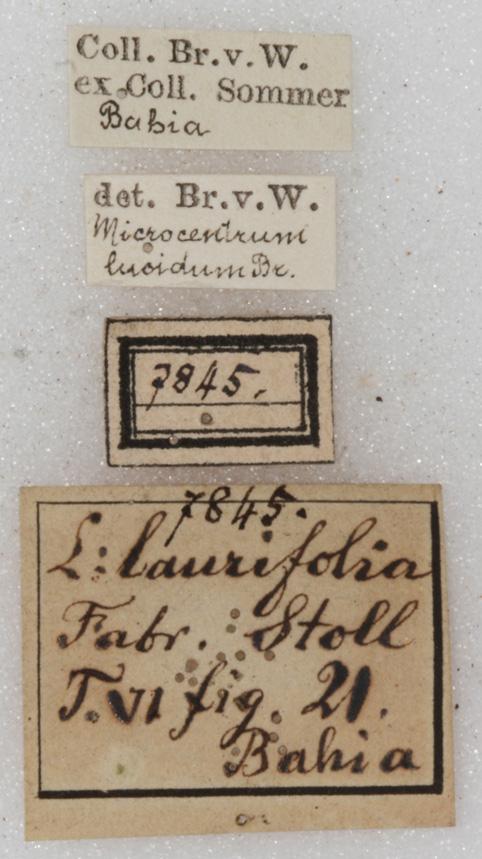 Coll. Br.v.W.
ex.Coll. Sommer
Bahia
det. Br.v.W.
Microcentrum
lucidum Br.
7845.
7845.
L: laurifolia
Fabr. Stoll
T. VI fig. 21.
Bahia